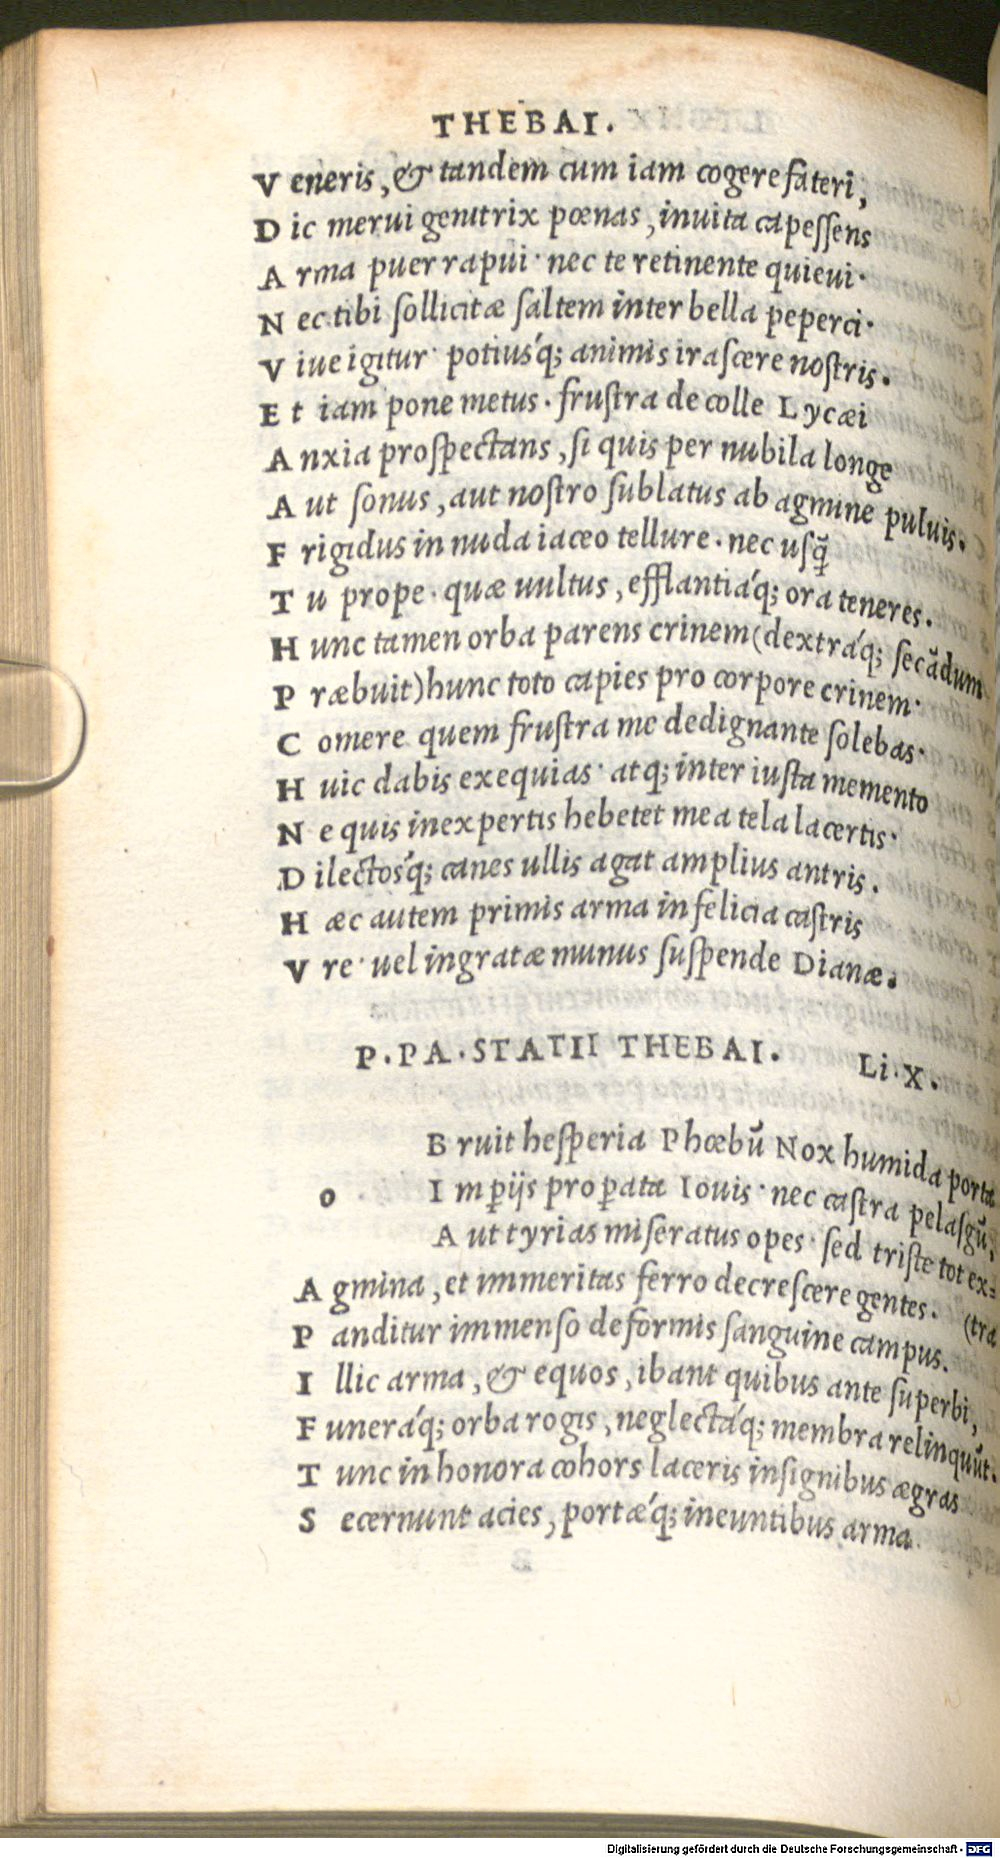 THEBAI.
V eneris, & tandem cum iam cogere fateri,
D ic merui genitrix pœnas, inuita capeſſens
A rma puer rapui· nec te retinente quieui·
N ec tibi ſollicitæ ſaltem inter bella peperci·
V iue igitur· potiusq́; animis iraſcere noſtris.
E t iam pone metus. fruſtra de colle Lycæi
A nxia proſpectans, ſi quis per nubila longe
A ut ſonus, aut noſtro ſublatus ab agmine puluis.
F rigidus in nuda iaceo tellure. nec uſq̃
T u prope· quæ uultus, efflantiaq́; ora teneres.
H unc tamen orba parens crinem (dextraq́; ſecādum
P ræbuit) hunc toto capies pro corpore crinem·
C omere quem fruſtra me dedignante ſolebas·
H uic dabis exequias· atq; inter iuſta memento
N e quis inexpertis hebetet mea tela lacertis·
D ilectosq́; canes ullis agat amplius antris.
H æc autem primis arma infelicia caſtris
V re· uel ingratæ munus ſuſpende Dianæ.
P. PA. STATII THEBAI. Li. X.
o
B ruit heſperia Phœbū Nox humida porta
I mꝑijs proꝑata Iouis· nec caſtra pelaſgū,
A ut tyrias miſeratus opes· ſed triſte tot ex-
A gmina, et immeritas ferro decreſcere gentes. (tra
P anditur immenſo deformis ſanguine campus.
I llic arma, & equos, ibant quibus ante ſuperbi,
F uneraq́; orba rogis, neglectaq́; membra relinquūt.
T unc inhonora cohors laceris inſignibus ægras
S ecernunt acies, portæq́; ineuntibus arma
Digitalisierung gefördert durch die Deutsche Forschungsgemeinschaft - DFG